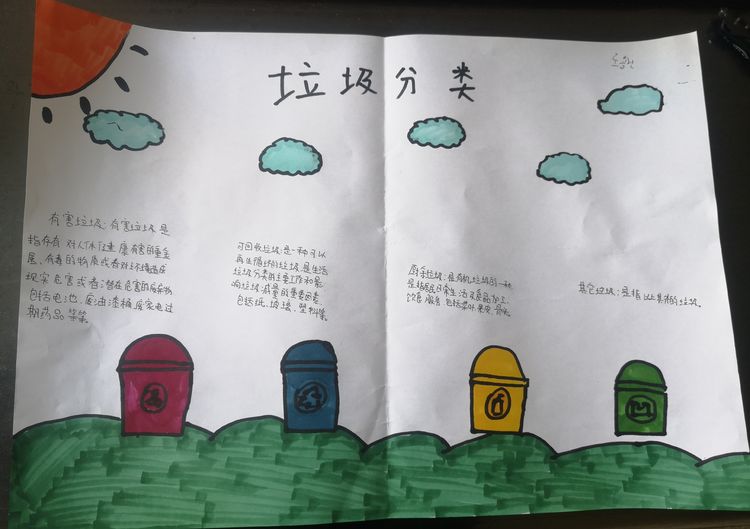 垃圾分类
有害垃圾:有害垃圾是
指存有对人体健康有害的重金
属、有毒的物质或者对环境造成
现实危害或者潜在危害的废弃物
包括电池、废油漆桶废家电过
期药品等等。
可回收垃圾:是一种可以
再生循环的垃圾,是生活
垃圾分类的主要工作和影
响垃圾减量的重要因素
包括纸、玻璃、塑料等。
厨余垃圾:是有机垃圾的一种
是指居民日常生活及食品加工、
饮食服务 包括菜叶 果皮、骨头。
其它垃圾:是指以上其余的垃圾。